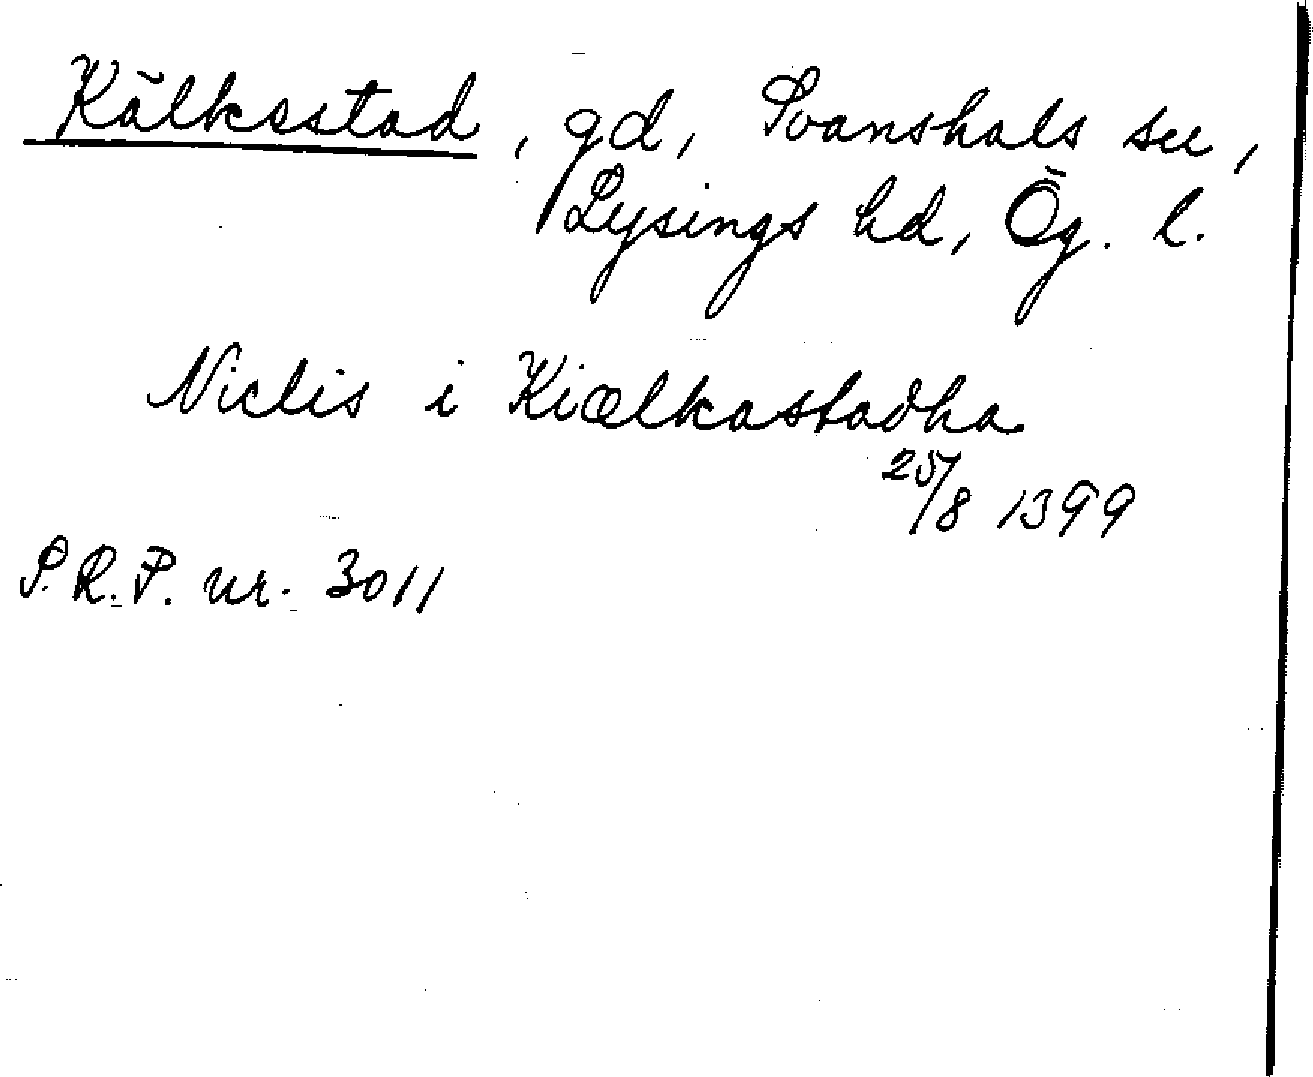 Kälkestad, gd, Svanshals sn,
Lysings hd, Ög. l.
Niclis i Kiælkastadha
25/8 1399
S.R.P. nr. 3011